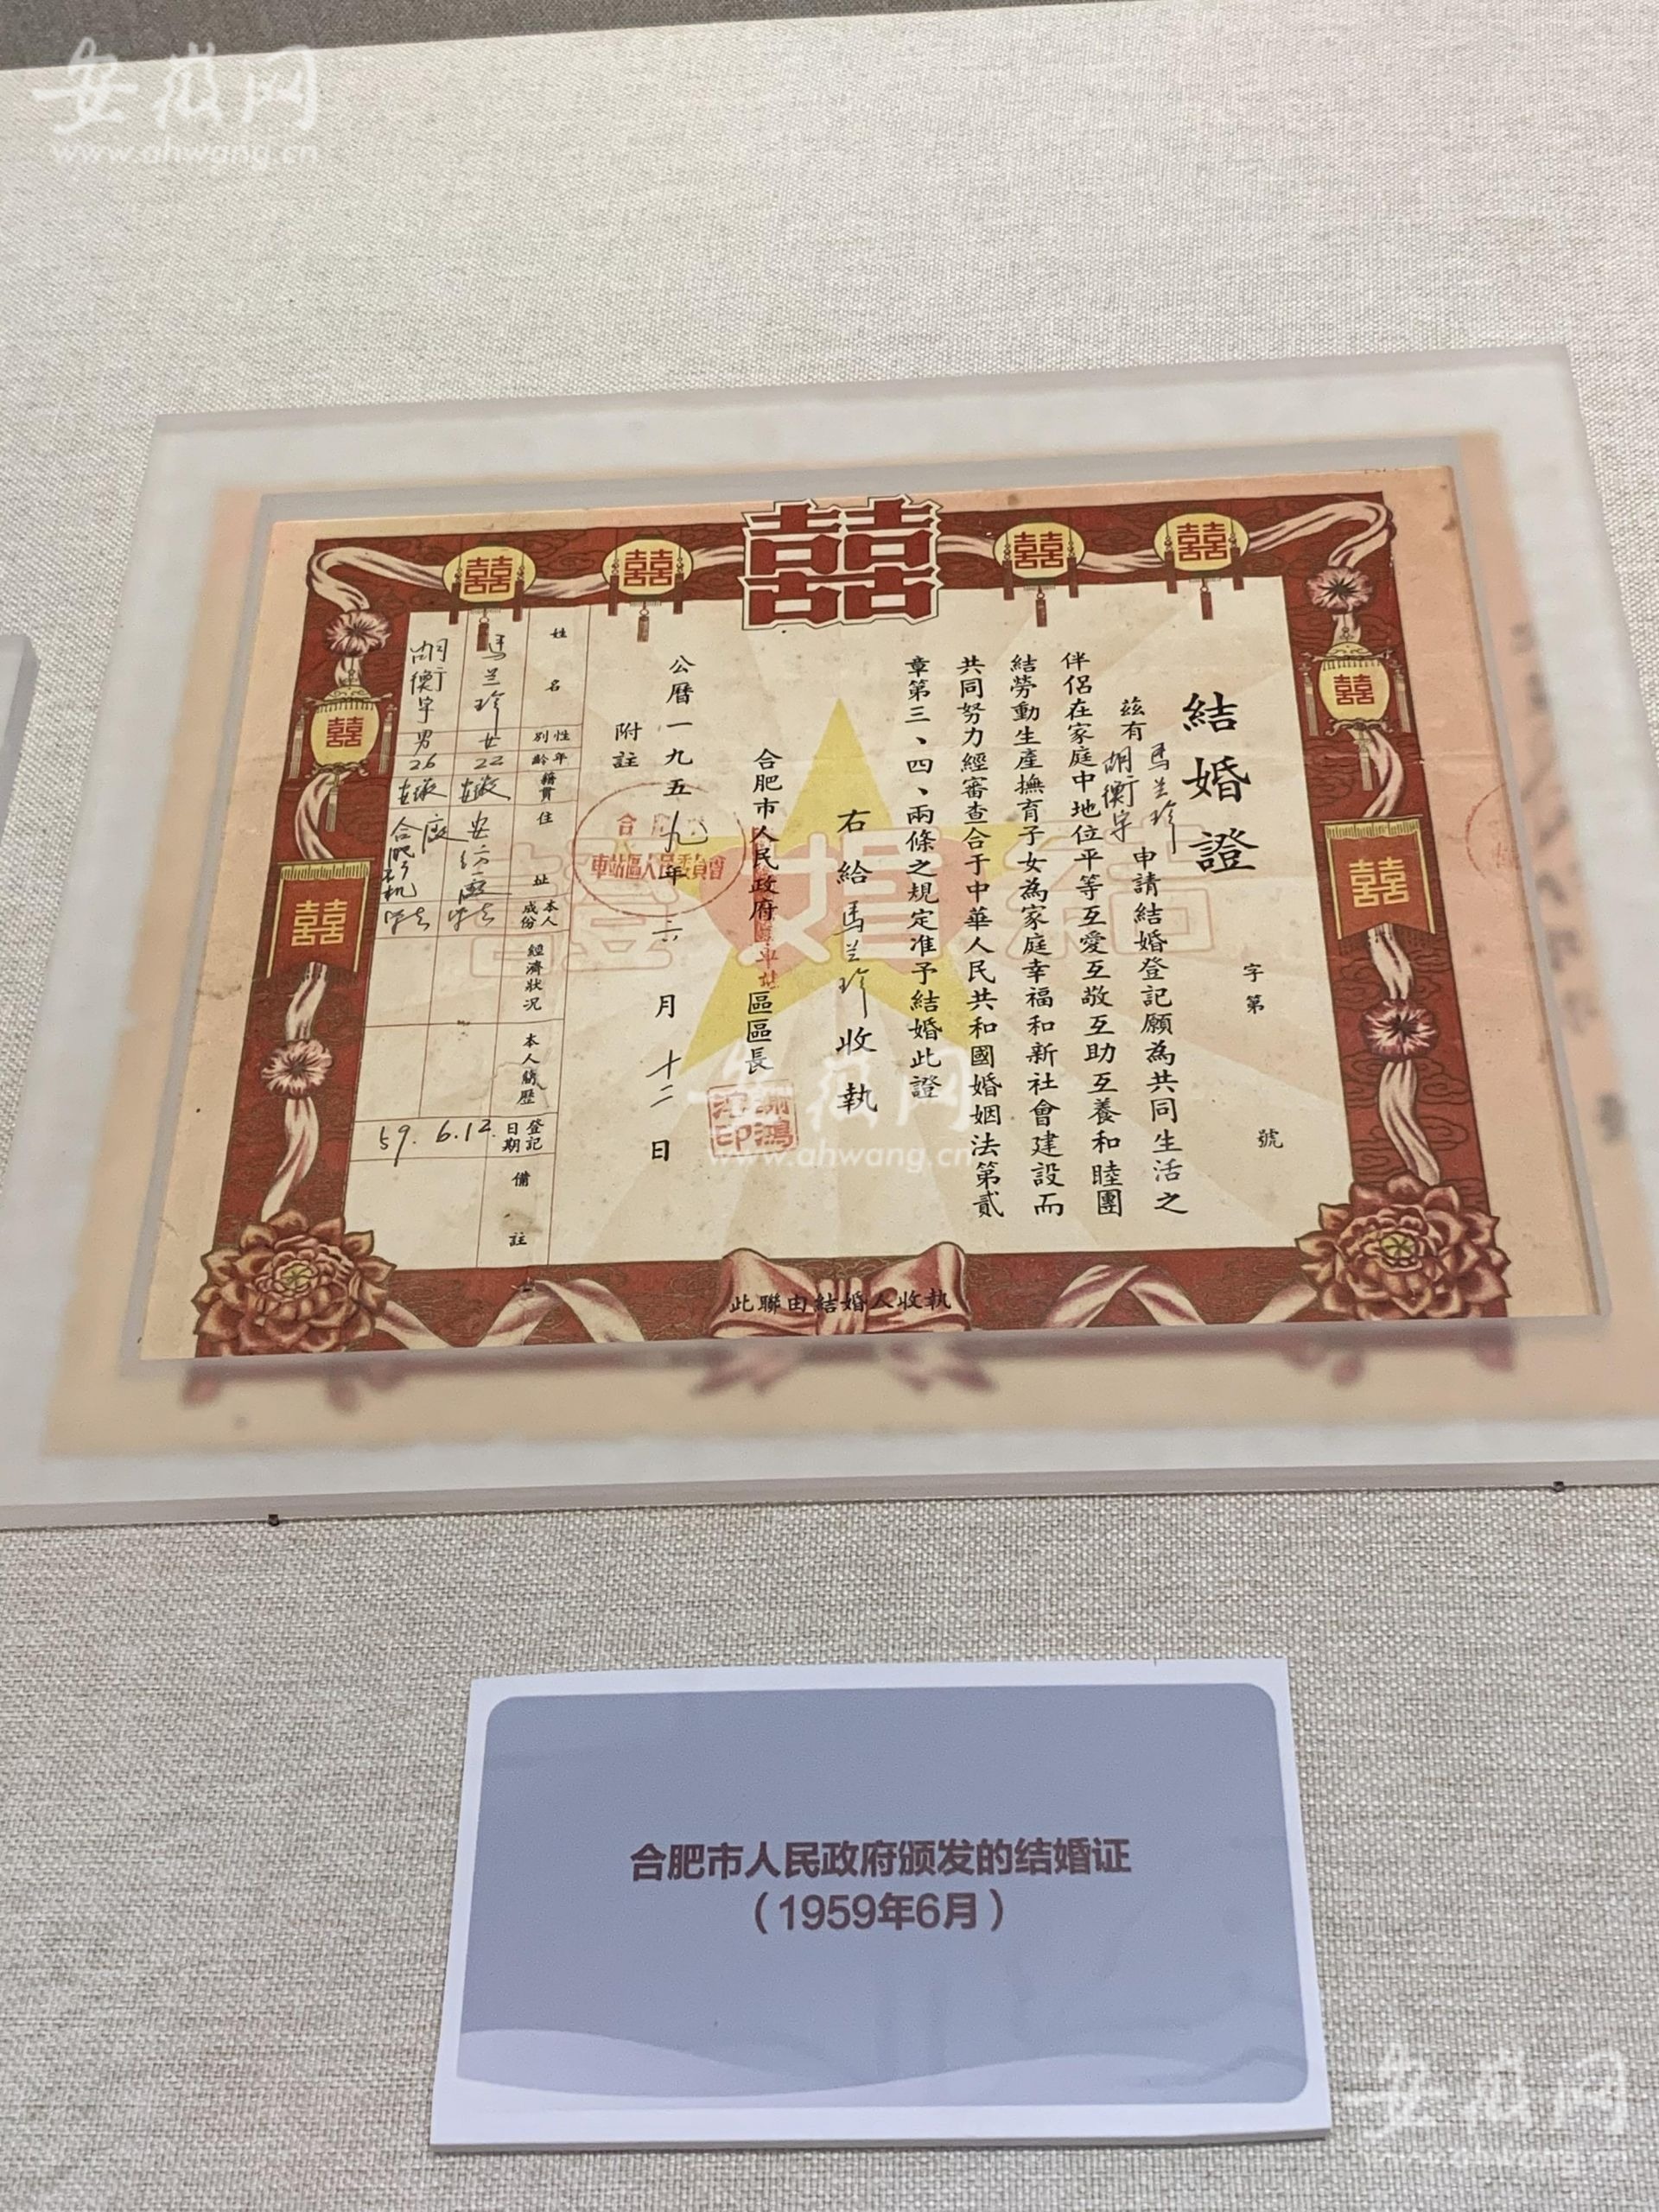 安徽网
www.ahwang.cn
囍
結婚證
字第 號
茲有 馬兰珍 胡衡宇 申請結婚登記願為共同生活之
伴侶在家庭中地位平等互愛互敬互助互養和睦團
結勞動生產撫育子女為家庭幸福和新社會建設而
共同努力經審查合于中華人民共和國婚姻法第貳
章第三、四、兩條之規定准予結婚此證
右給馬兰珍收執
合肥市人民政府 車站 區區長
公曆一九五九年六月十二日
附註
姓名
性別
年齡
籍貫
住址
本人成份
經濟狀况
本人簡歷
登記日期
備註
馬兰珍
女
22
安徽
胡衡宇
男
26
安徽
59. 6.12.
車站區人民委員會
結婚證
此聯由結婚人收執
安徽网
www.ahwang.cn
合肥市人民政府颁发的结婚证
（1959年6月）
安徽网
www.ahwang.cn